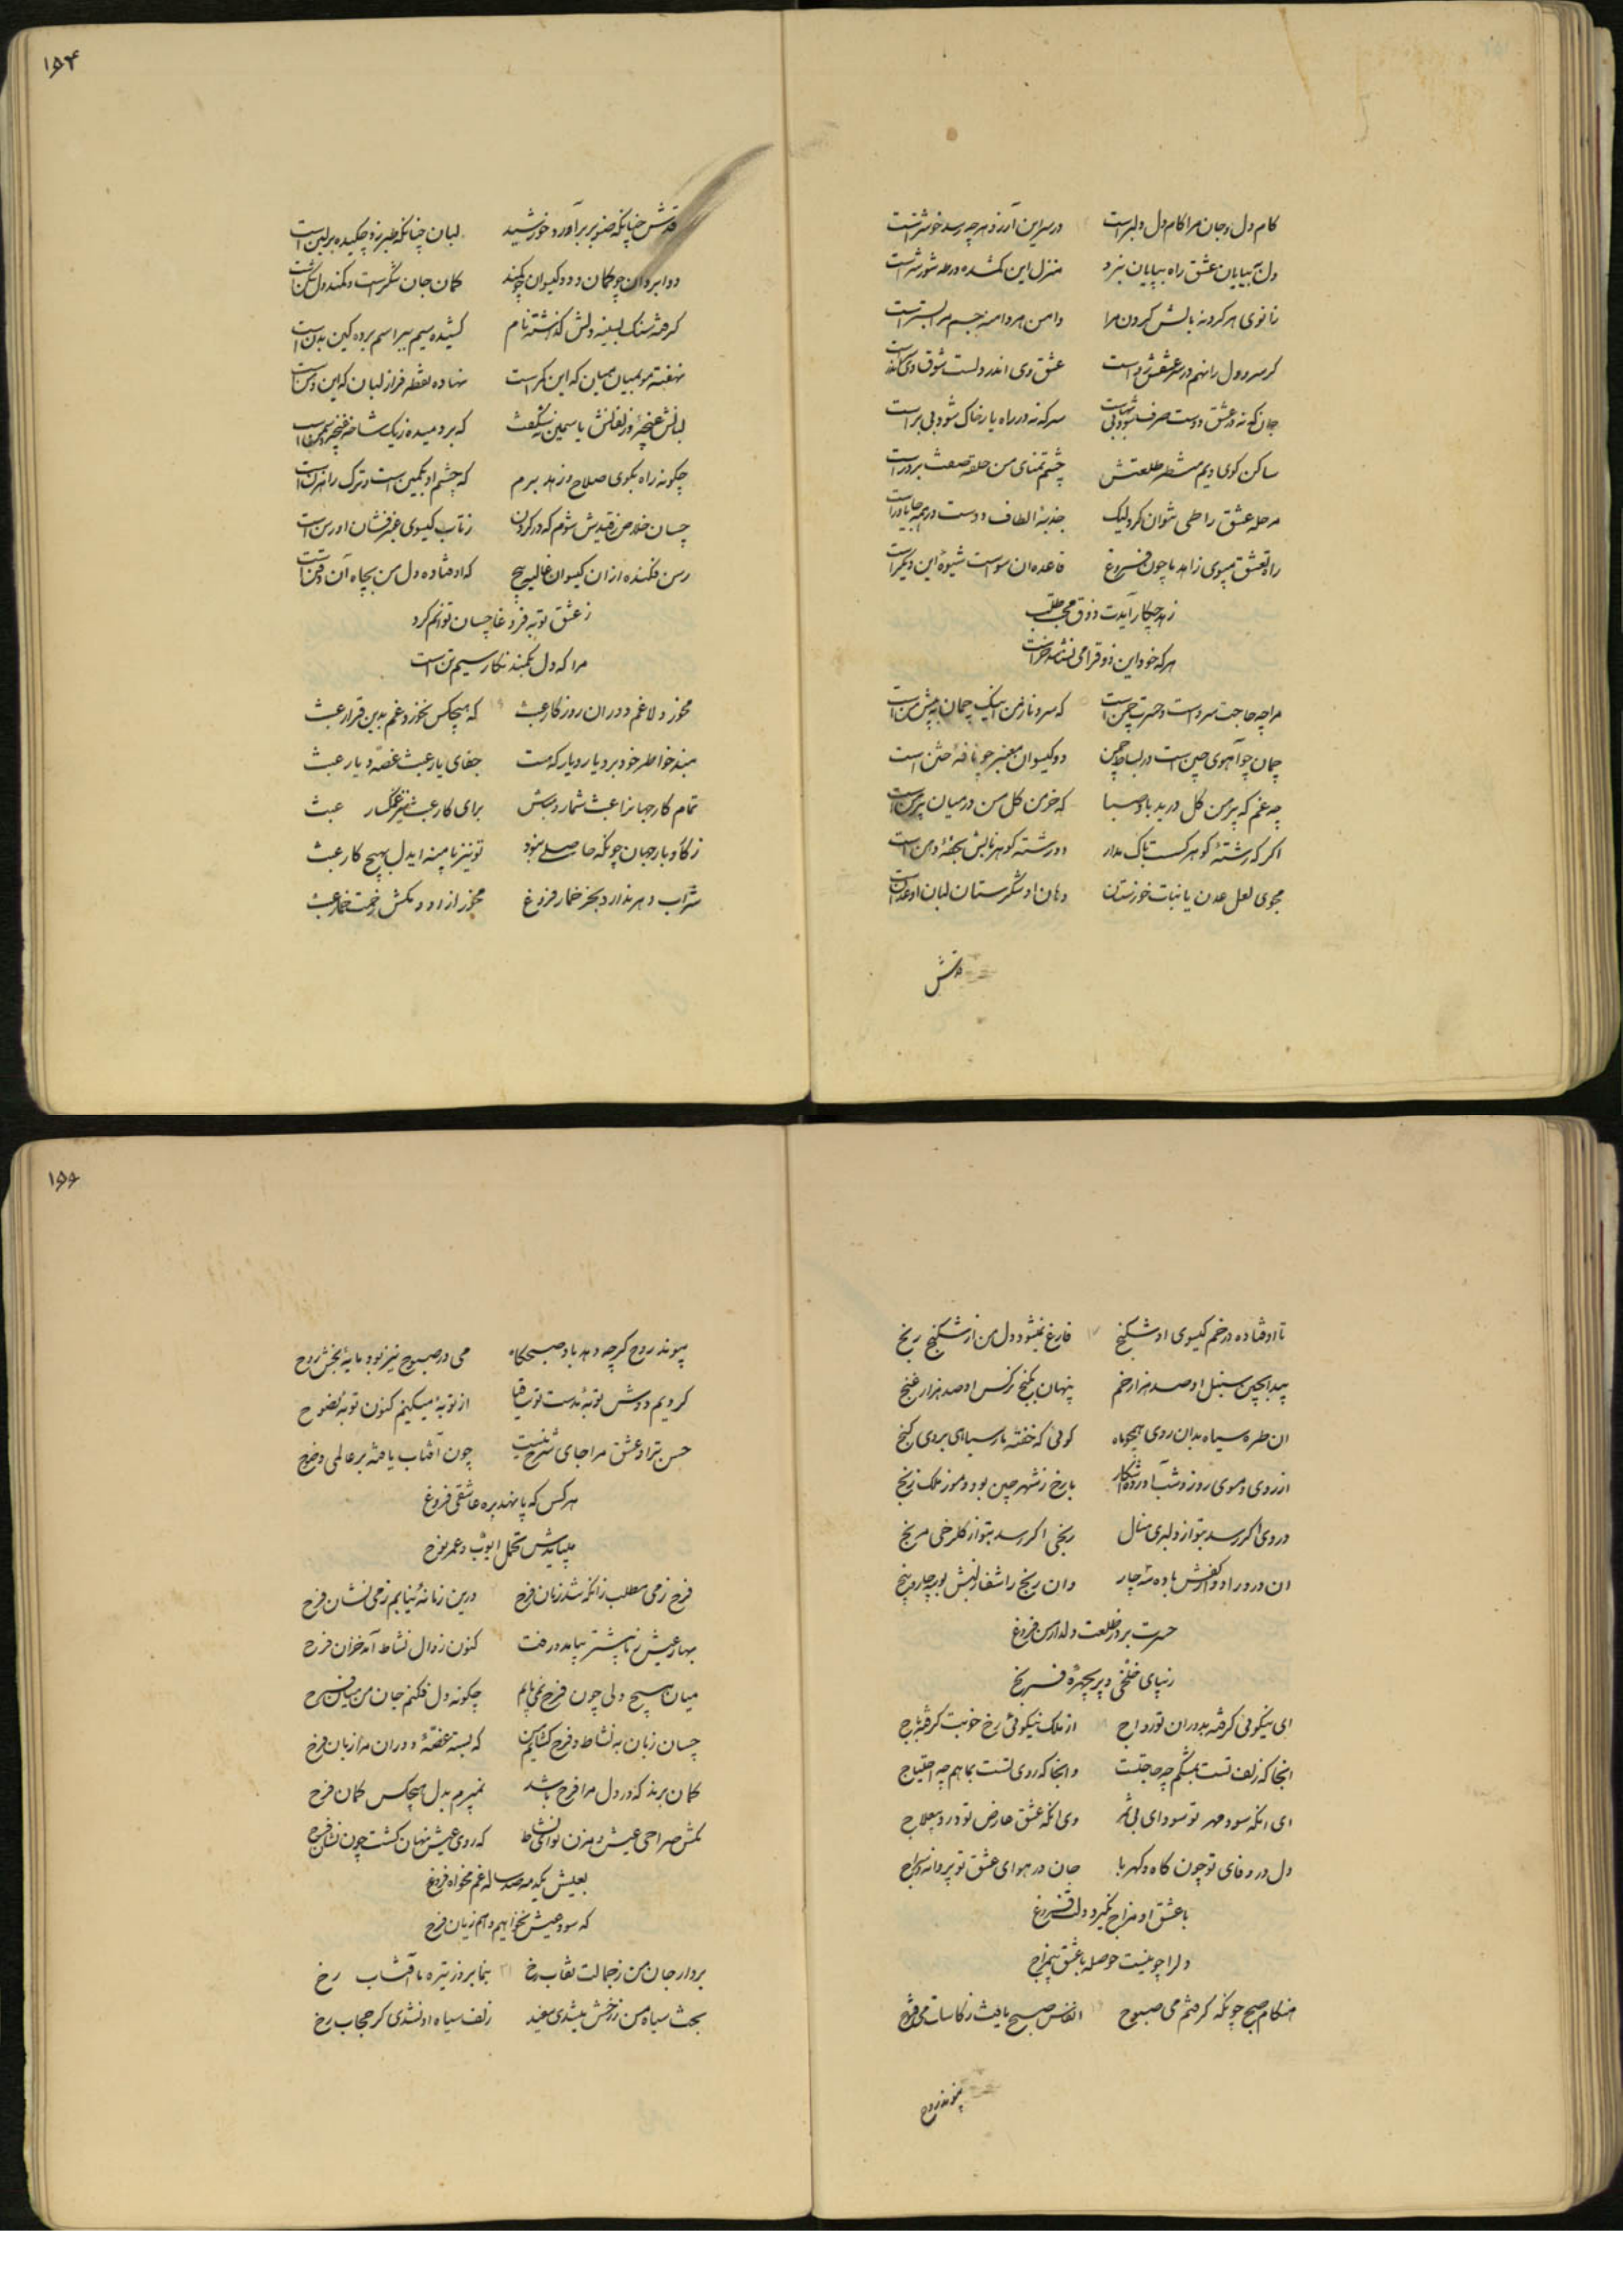 کام دل و جان مرا کام دل دلبر است در سر این آرزو هر چه رسد خوشتر است
دل به بیابان عشق راه بپایان نبرد منزل این گمشده در ره شور و شر است
زانوی هر کرد نه بالش کردن مرا دامن هر دامنه جسم مرا بستر است
گر سر و دل را نهم در سر عشقش رواست عشق وی اندر دلست شوق وی اندر سر است
جان که نه در عشق دوست صرف شود بی بهاست سر که نه در راه یار خاک شود بی بر است
ساکن کوی ویم منتظر طلعتش چشم تمنای من حلقه صفت بر در است
مرحله عشق را طی نتوان کرد لیک جذبهٔ الطاف دوست در همه جا یاور است
راه تعشق مپوی زاهد ما چون فروغ قاعده آن سواست شیوهٔ این دیگر است
زهد چکار آیدت ذوق محبت طلب
هر که خود این ذوق را می نشناسد خر است
مرا چه حاجت سرو است و حسرت چمن است که سرو ناز من اینک چمان به پیش من است
چمان چو آهوی چین است در بساط چمن دو گیسوان معنبر چو نافهٔ ختن است
چه غم که پیرهن گل درید باد صبا که خرمن گل من در میان پیرهن است
اگر که رشتهٔ گوهر گسست باک مدار دو رشته گوهر نابش بحقهٔ دهن است
مجوی لعل عدن یا نبات خوزستان دهان او شکرستان لبان او عدن است
قدش
۱۵۴
قدش چنانکه صنوبر برآورد خورشید لبان چنانکه طبرزد چکیده بر لبن است
دو ابروان چو کمان و دو گیسوان چو کمند کمان جان شکر است و کمند دل شکن است
گرفته سنگ بسینه دلش گذاشته نام کشیده سیم ببر اسم برده کین بدن است
نهفته مو بمیان بمیان که این کمر است نهاده نقطه فراز لبان که این دهن است
لبانش غنچه و زلفانش یاسمین نه شگفت که بر دمیده ز یک شاخه غنچه و سمن است
چگونه راه بکوی صلاح و زهد برم که چشم او بکمین است و ترک راهزن است
چسان خلاص ز قیدش شوم که در گردن ز تاب گیسوی عنبر فشان او رسن است
رسن فکنده از آن گیسوان غالیه پیچ که اوفتاده دل من بچاه آن ذقن است
ز عشق توبه فروغا چسان توانم کرد
مرا که دل بکمند نگار سیم تن است
مخور دلا غم دوران روزگار عبث که هیچکس نخورد غم بدین قرار عبث
مبند خواطر خود بر دیار و یار که هست جفای یار عبث غصهٔ دیار عبث
تمام کار جهانرا عبث شمار و مباش برای کار عبث نیز غمگسار عبث
ز کار و بار جهان چونکه حاصلی نبود تو نیز پا منه ایدل بهیچ کار عبث
شراب دهر ندارد بجز خمار فروغ مخور از او و مکش زحمت خمار عبث
تا اوفتاده در خم گیسوی او شکنج فارغ نمیشود دل من از شکنج رنج
پیدا بچین سنبل او صد هزار خم پنهان بکنج نرگس او صد هزار غنج
آن طره سیاه بدان روی همچو ماه گوئی که خفته مار سیاهی بروی گنج
از روی و موی روز و شب آورده آشکار با رخ ز شهر چین بود و موز ملک زنج
دردی اگر رسد بتو از دلبری منال رنجی اگر رسد بتو از گلرخی مرنج
آن درد را دوا ز کفش باده سه چار وان رنج را شفا ز لبش بوسه چار و پنج
حسرت برد ز طلعت دلدار من فروغ
زیبای خلخی و پریچهرهٔ فرنج
ای نیکوئی گرفته بدوران تو رواج از ملک نیکوئی رخ خوبت گرفته باج
آنجا که زلف تست بمشکم چه حاجتست وانجا که روی تست بماهم چه احتیاج
ای آنکه سود مهر تو سودای بی ثمر وی آنکه عشق عارض تو درد بیعلاج
دل در وفای تو چون کاه و کهربا جان در هوای عشق تو پروانه و سراج
با عشق او مزاج نگیرد دلت فروغ
دلرا چو نیست حوصله با عشق هم مزاج
هنگام صبح چونکه گرفتم می صبوح انفاس صبح یافت ز کاسات می فتوح
پیوند روح
۱۵۵
پیوند روح گرچه دهد باد صبحگاه می در صبوح نیز بود مایهٔ بخش روح
کردیم دوش توبه بدست تو ساقیا از توبه میکنیم کنون توبهٔ نصوح
حسن ترا و عشق مرا جای شرح نیست چون آفتاب یافته بر عالمی وضوح
هر کس که پا نهد بره عاشقی فروغ
میبایدش تحمل ایوب و عمر نوح
فرح ز می مطلب زانکه شد زمان فرح درین زمانه نیابم ز می نشان فرح
بهار عیش ز ما پیشتر بیامد و رفت کنون زوال نشاط آمد خزان فرح
میان هیچ ولی چون فرح نمی یابم چگونه دل فکنم جان من میان فرح
چسان زبان به نشاط و فرح گشایم من که بسته غصهٔ دوران مرا زبان فرح
گمان برند که در دل مرا فرح باشد نمیبرم بدل هیچکس گمان فرح
بکش صراحی عیش و بزن نوای نشاط که روی عیش نهان گشت چون نشان فرح
بعیش یکدمه صد ساله غم مخواه فروغ
که سود عیش نخواهیم و هم زیان فرح
بردار جان من ز جمالت نقاب رخ بنما بروز تیره ما آفتاب رخ
بخت سیاه من ز رخش میشدی سفید زلف سیاه او نشدی گر حجاب رخ